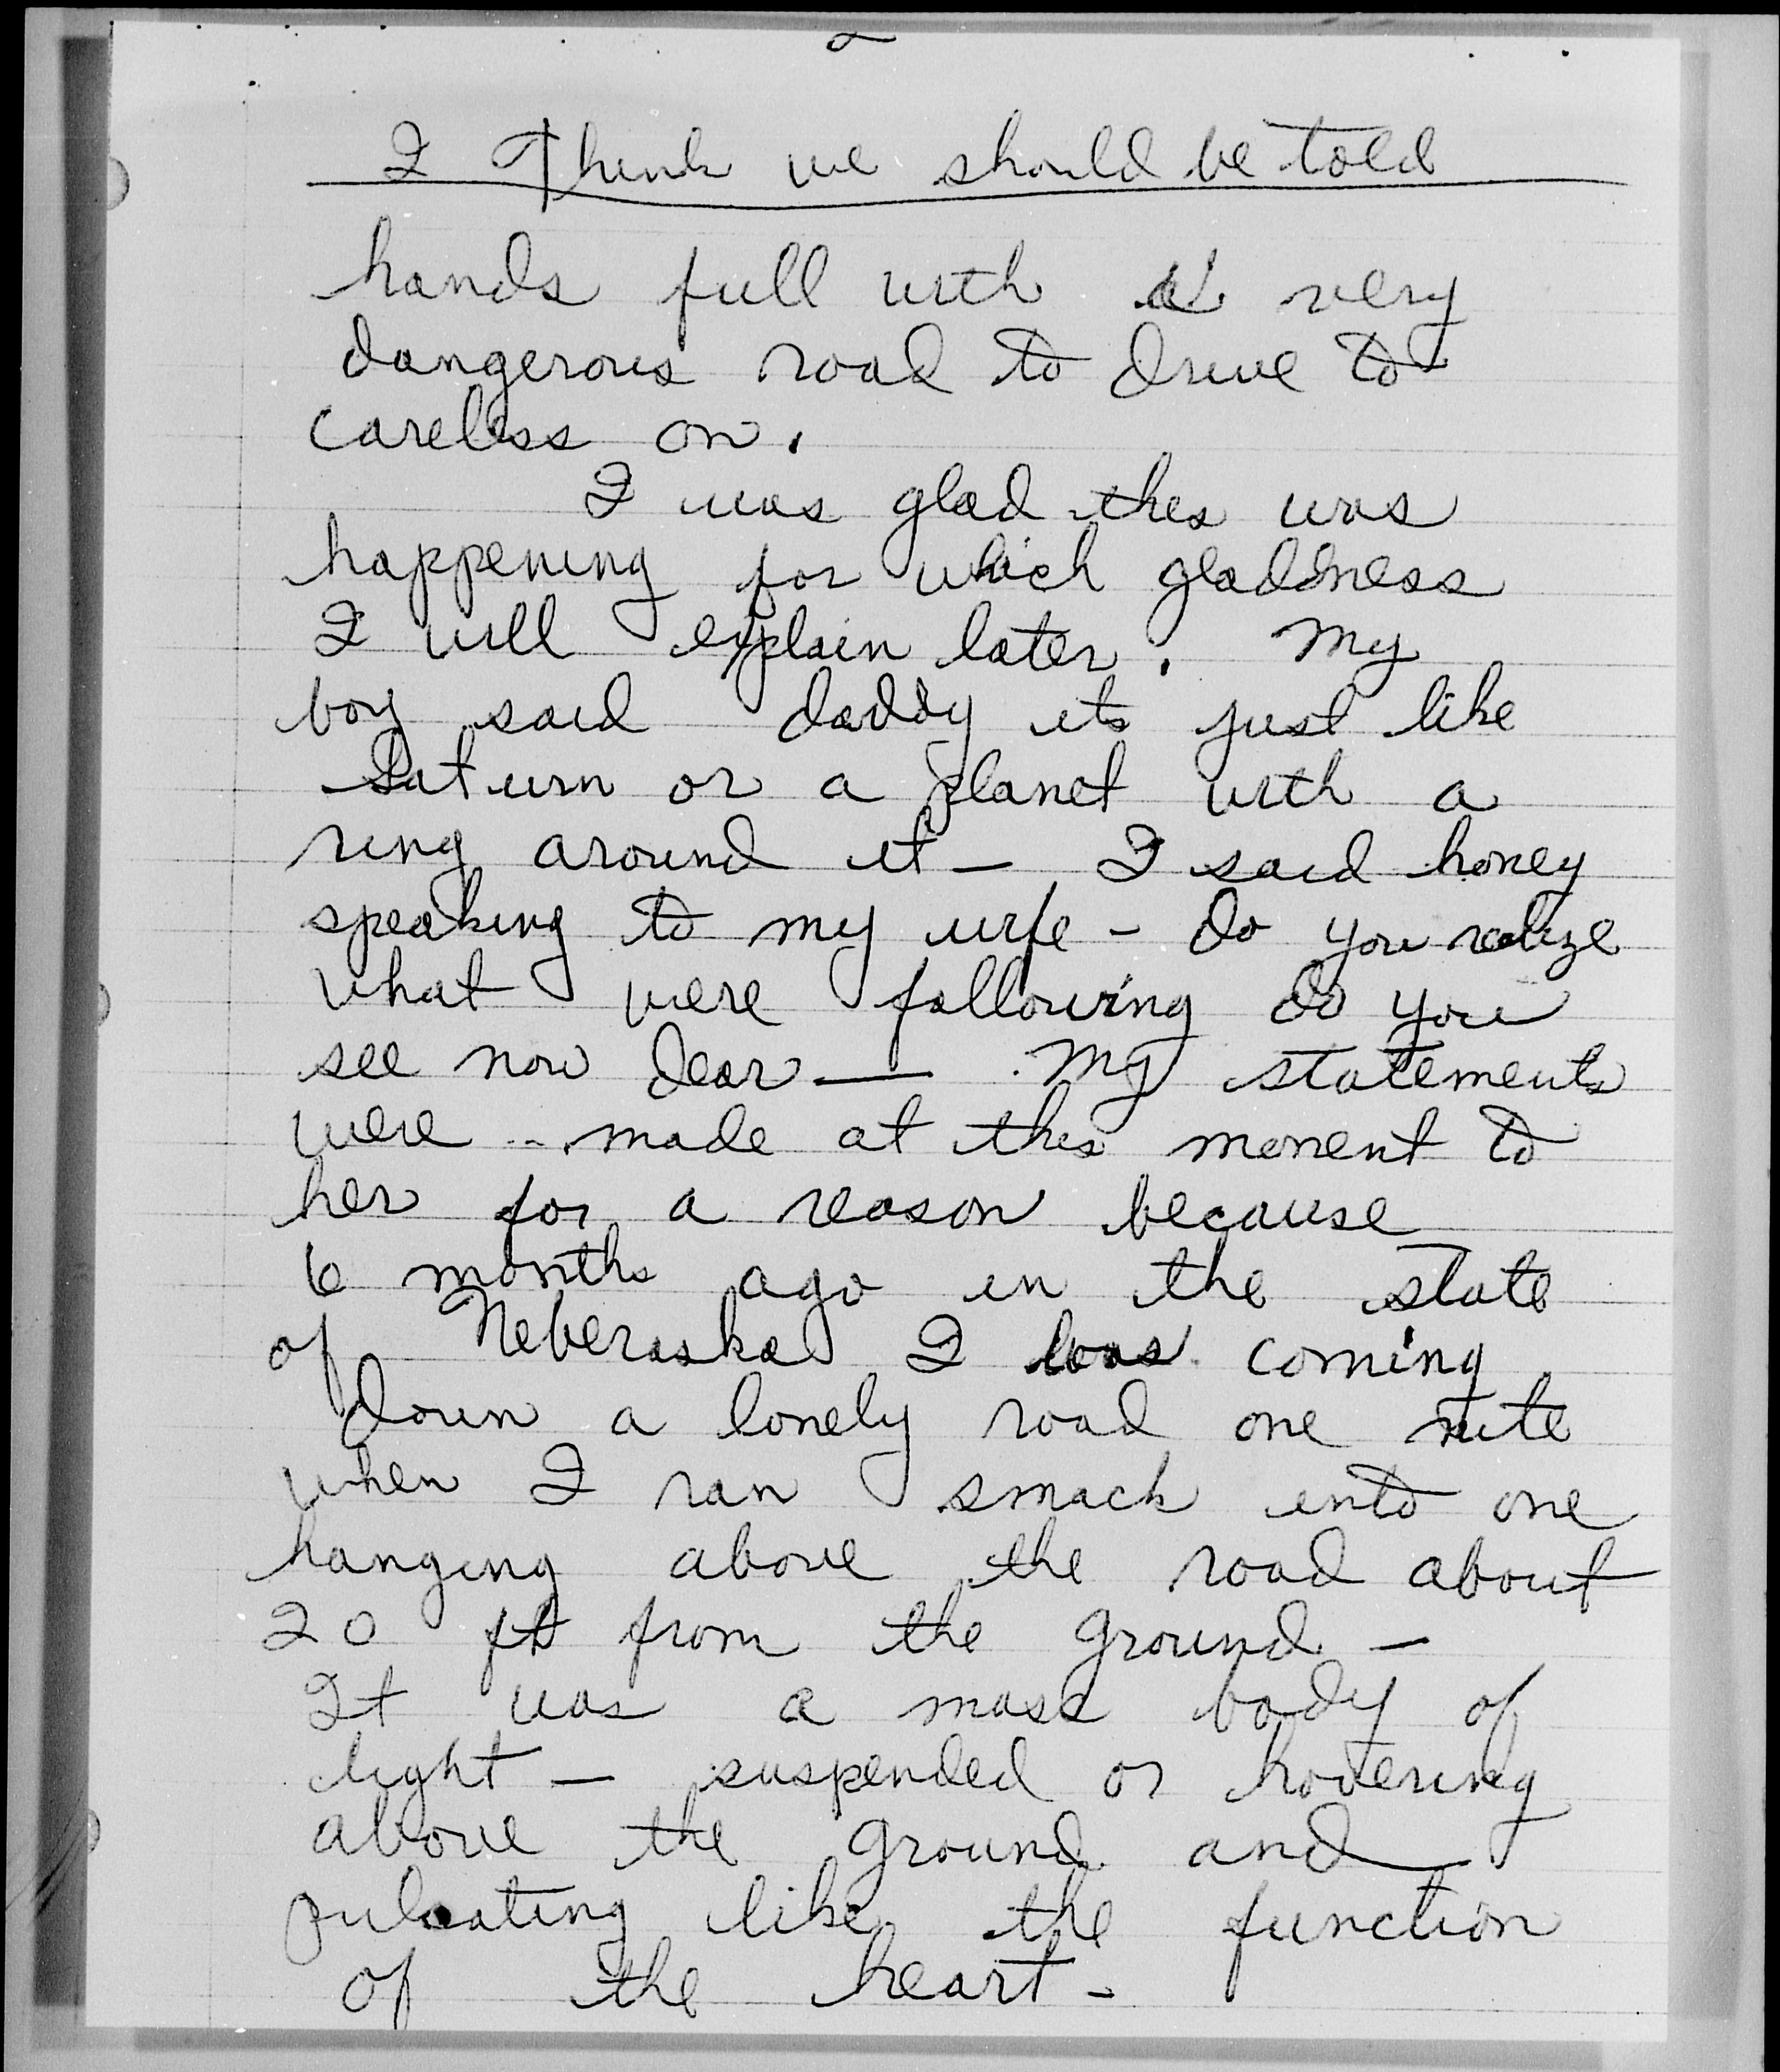 2
I Think we should be told
hands full with a very
dangerous road to drive to
careless on.
I was glad this was
happening for which gladdness
I will explain later. My
boy said daddy its just like
Saturn or a planet with a
ring around it — I said honey
speaking to my wife - do you realize
what were following do you
see now dear — my statements
were made at this moment to
her for a reason because
6 months ago in the state
of Neberaska I was coming
down a lonely road one nite
when I ran smack into one
hanging above the road about
20 ft from the ground —
It was a mass body of
light — suspended or hovering
above the ground and
pulsating like the function
of the heart -